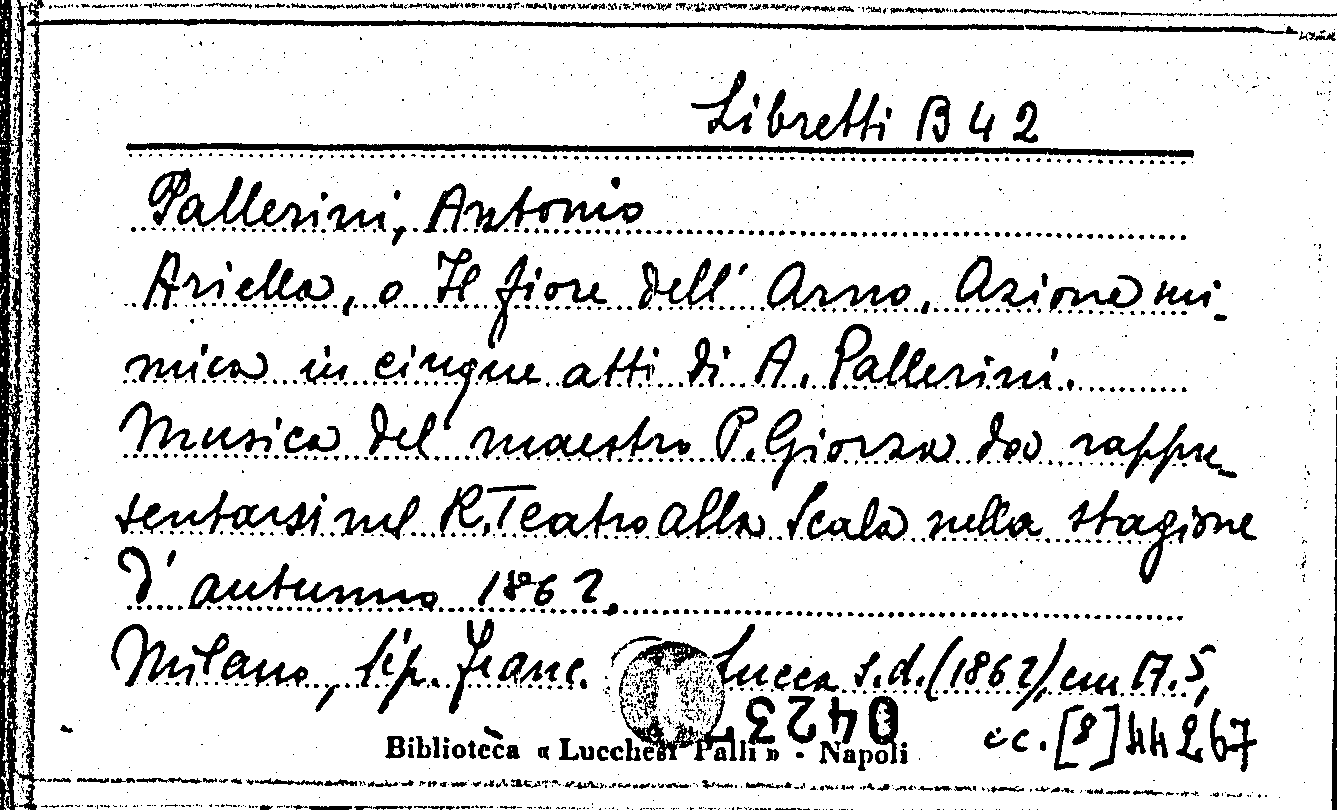 Libretti B 42
Pallerini, Antonio
Ariella, o Il fiore dell' Arno. Azione mi-
mica in cinque atti di A. Pallerini.
Musica del maestro P. Giorza da rappre-
sentarsi nel R. Teatro alla Scala nella stagione
d' autunno 1862.
Milano, tip. Franc. Lucca s.d. (1862), cm 17.5,
cc. [8] 44267
0423
Biblioteca « Lucchesi Palli » - Napoli